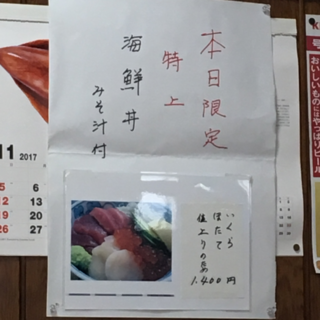 本日限定
特上
海鮮丼
みそ汁付
いくら
ほたて
値上りのため
1.400円
11 2017
5 6
12 13
19 20
26 27
おいしいものにはやっぱりビール